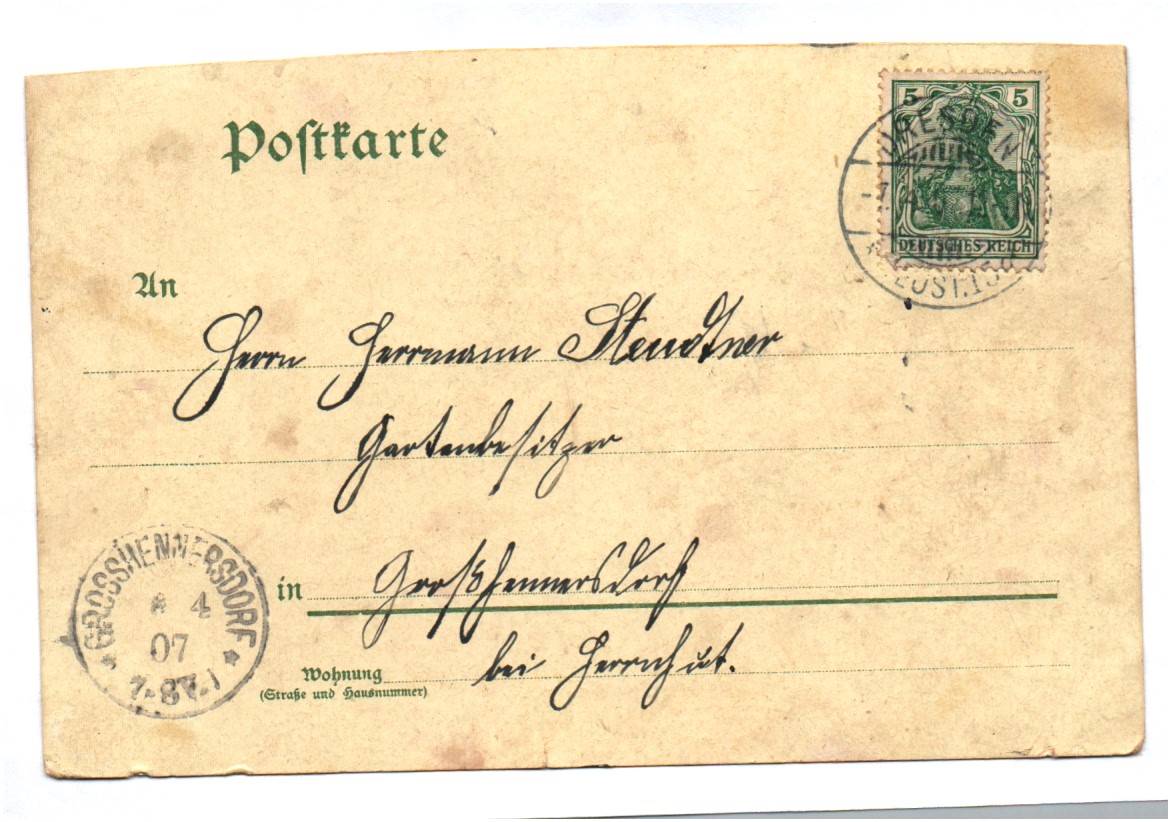 Postkarte
5 5
DRESDEN
DEUTSCHES REICH
An
Herrn Herrmann Steudtner
Gartenbesitzer
in Großhennersdorf
bei Herrnhut.
Wohnung
(Straße und Hausnummer)
* GROSSHENNERSDORF *
4
07
7-8V.